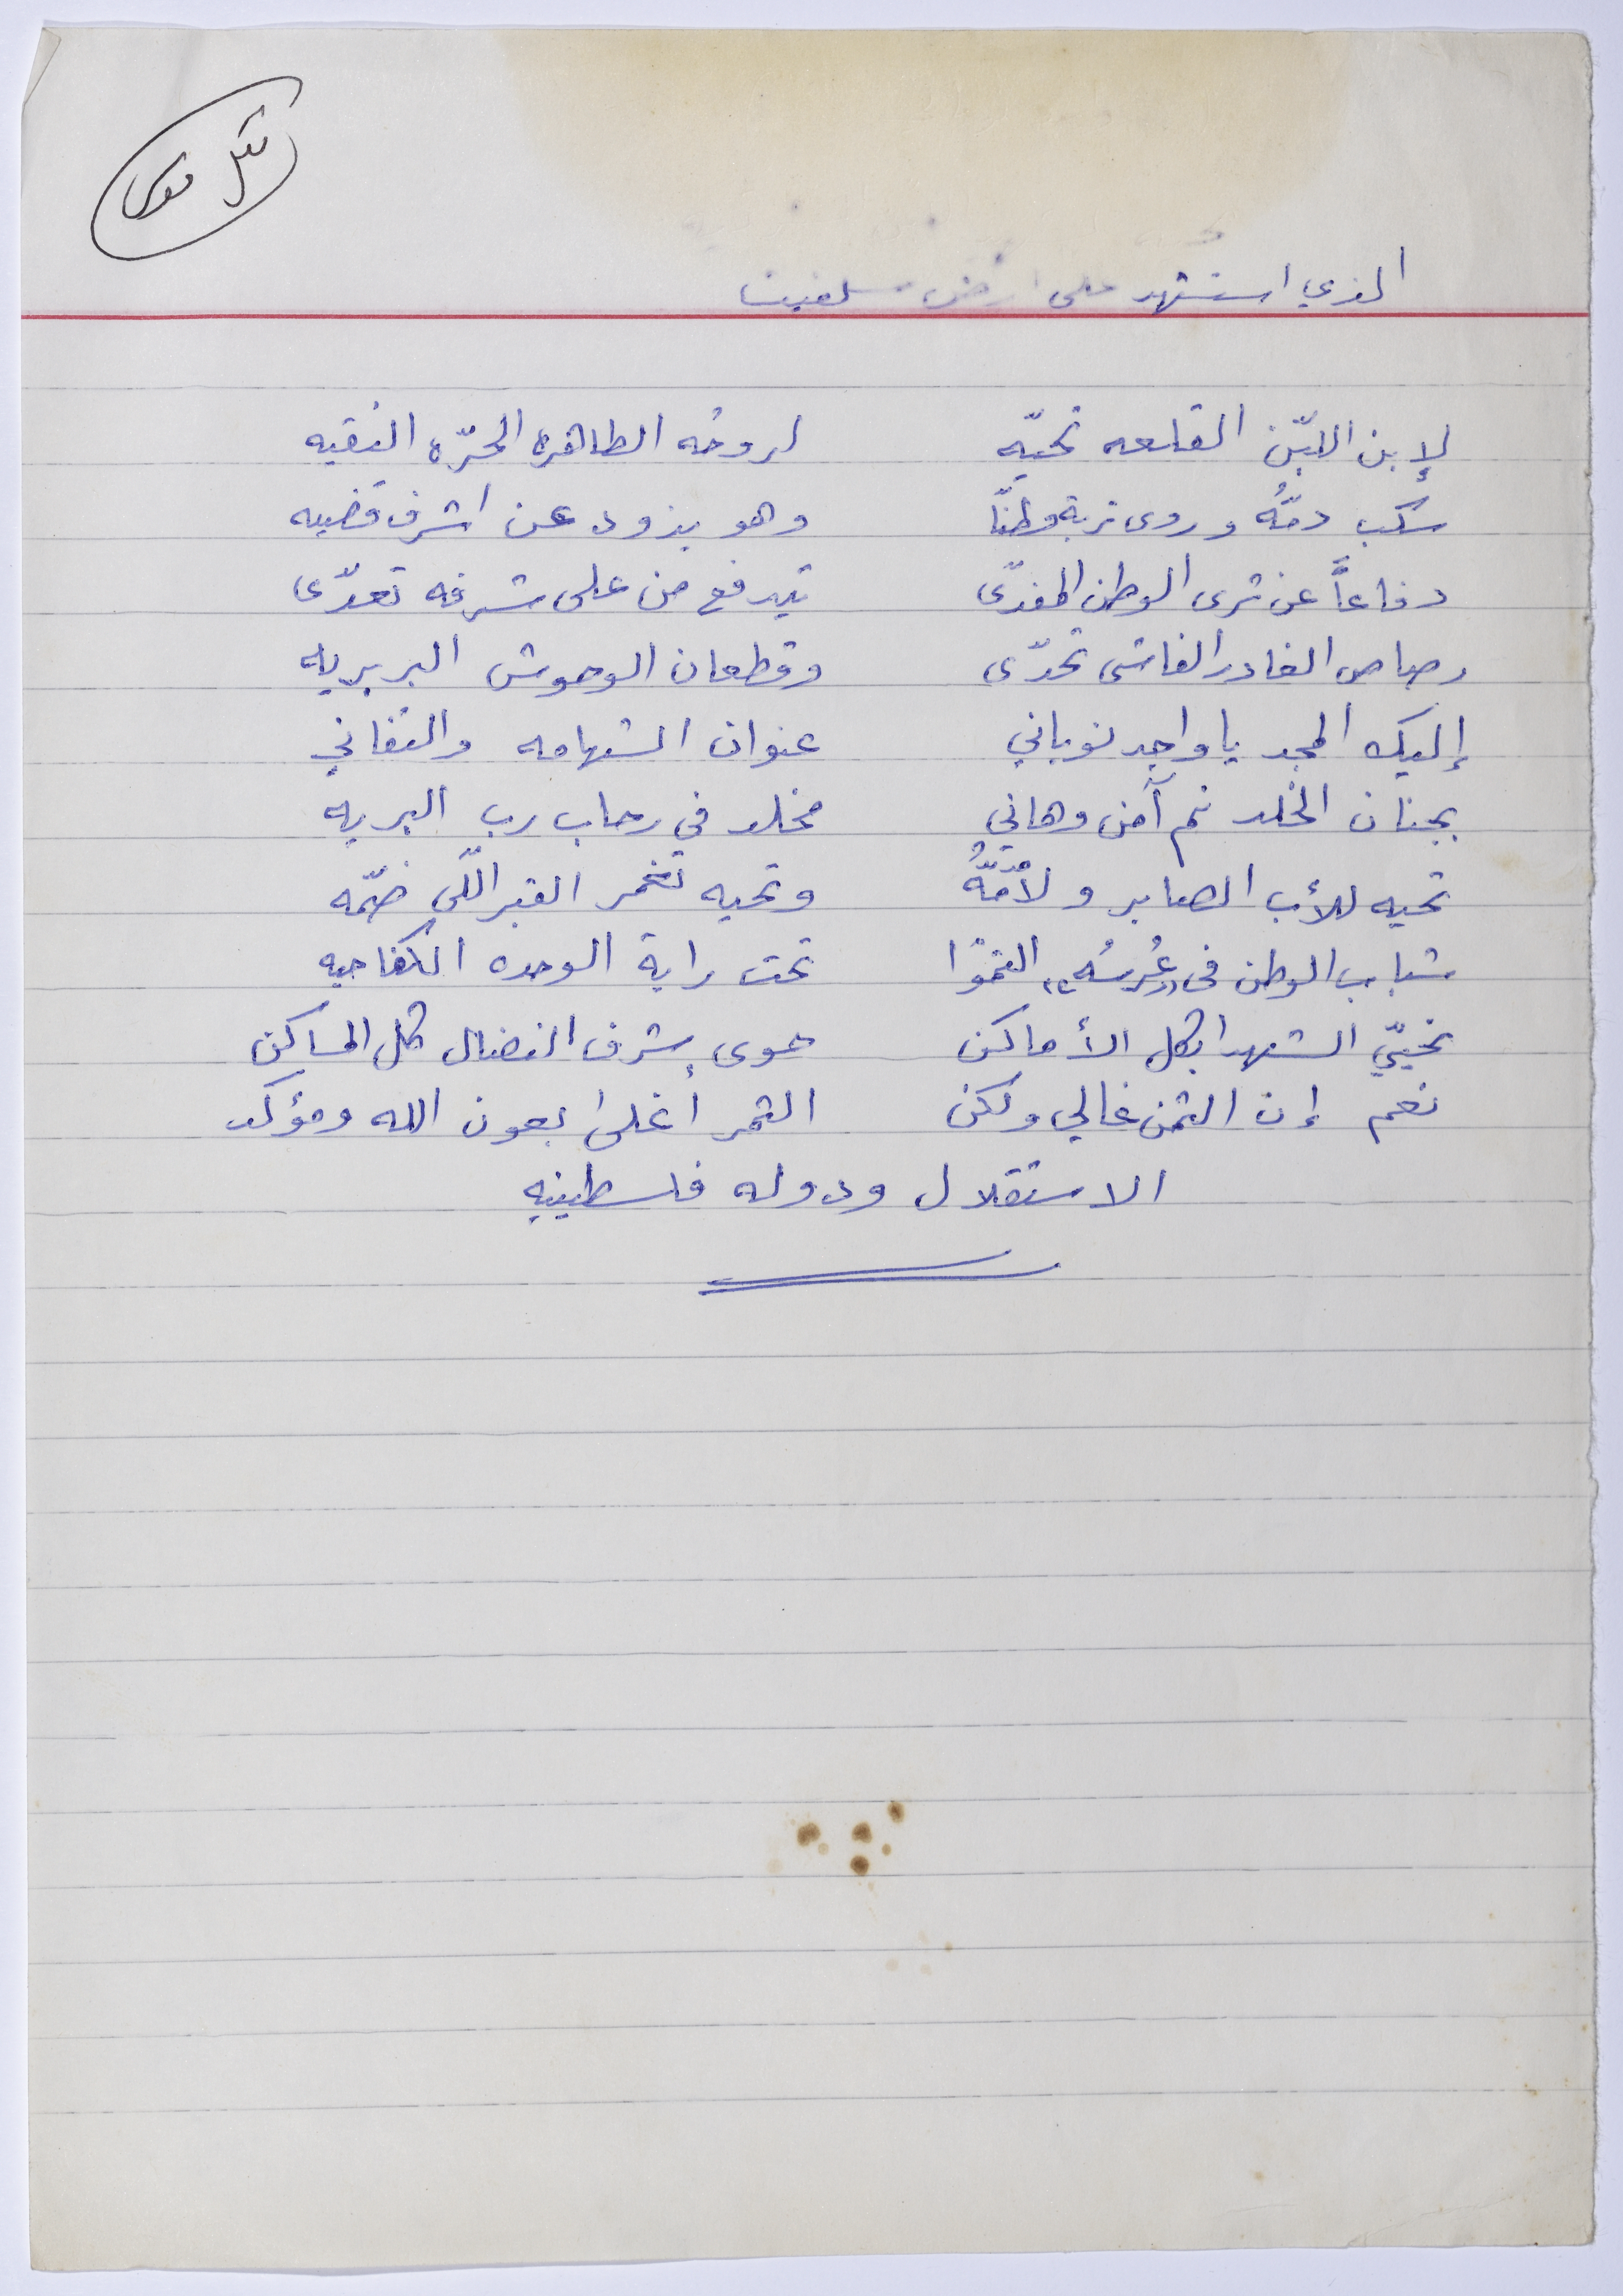 الذي استشهد على ارض سلفيت
لإبن اللبّن القلعه تحيّه لروحُه الطاهره الحرّه النقيه
سكب دمُّه وروى تربة وطنّا وهو يذود عن اشرف قضيه
دفاعاً عن ثرى الوطن المفدّى تيدفع من على شرفه تعدّى
رصاص الغادر الفاشي تحدّى وقطعان الوحوش البربريه
إليك المجد يا واجد نوباني عنوان الشهامه والتفاني
بجنان الخلد نم آمن وهاني مخلد في رحاب رب البريه
تحيه للأب الصابر ولأمّهُ وتحيه تغمر القبر اللّي ضمّه
شباب الوطن في "عُرسُه" التمّوا تحت راية الوحده الكفاحيه
نحيّي الشهدا بكل الأماكن حوى بشرف النضال كل المساكن
نعم إن الثمن غالي ولكن الثمر أغلى بعون الله ومؤكد
الاستقلال ودوله فلسطينيه